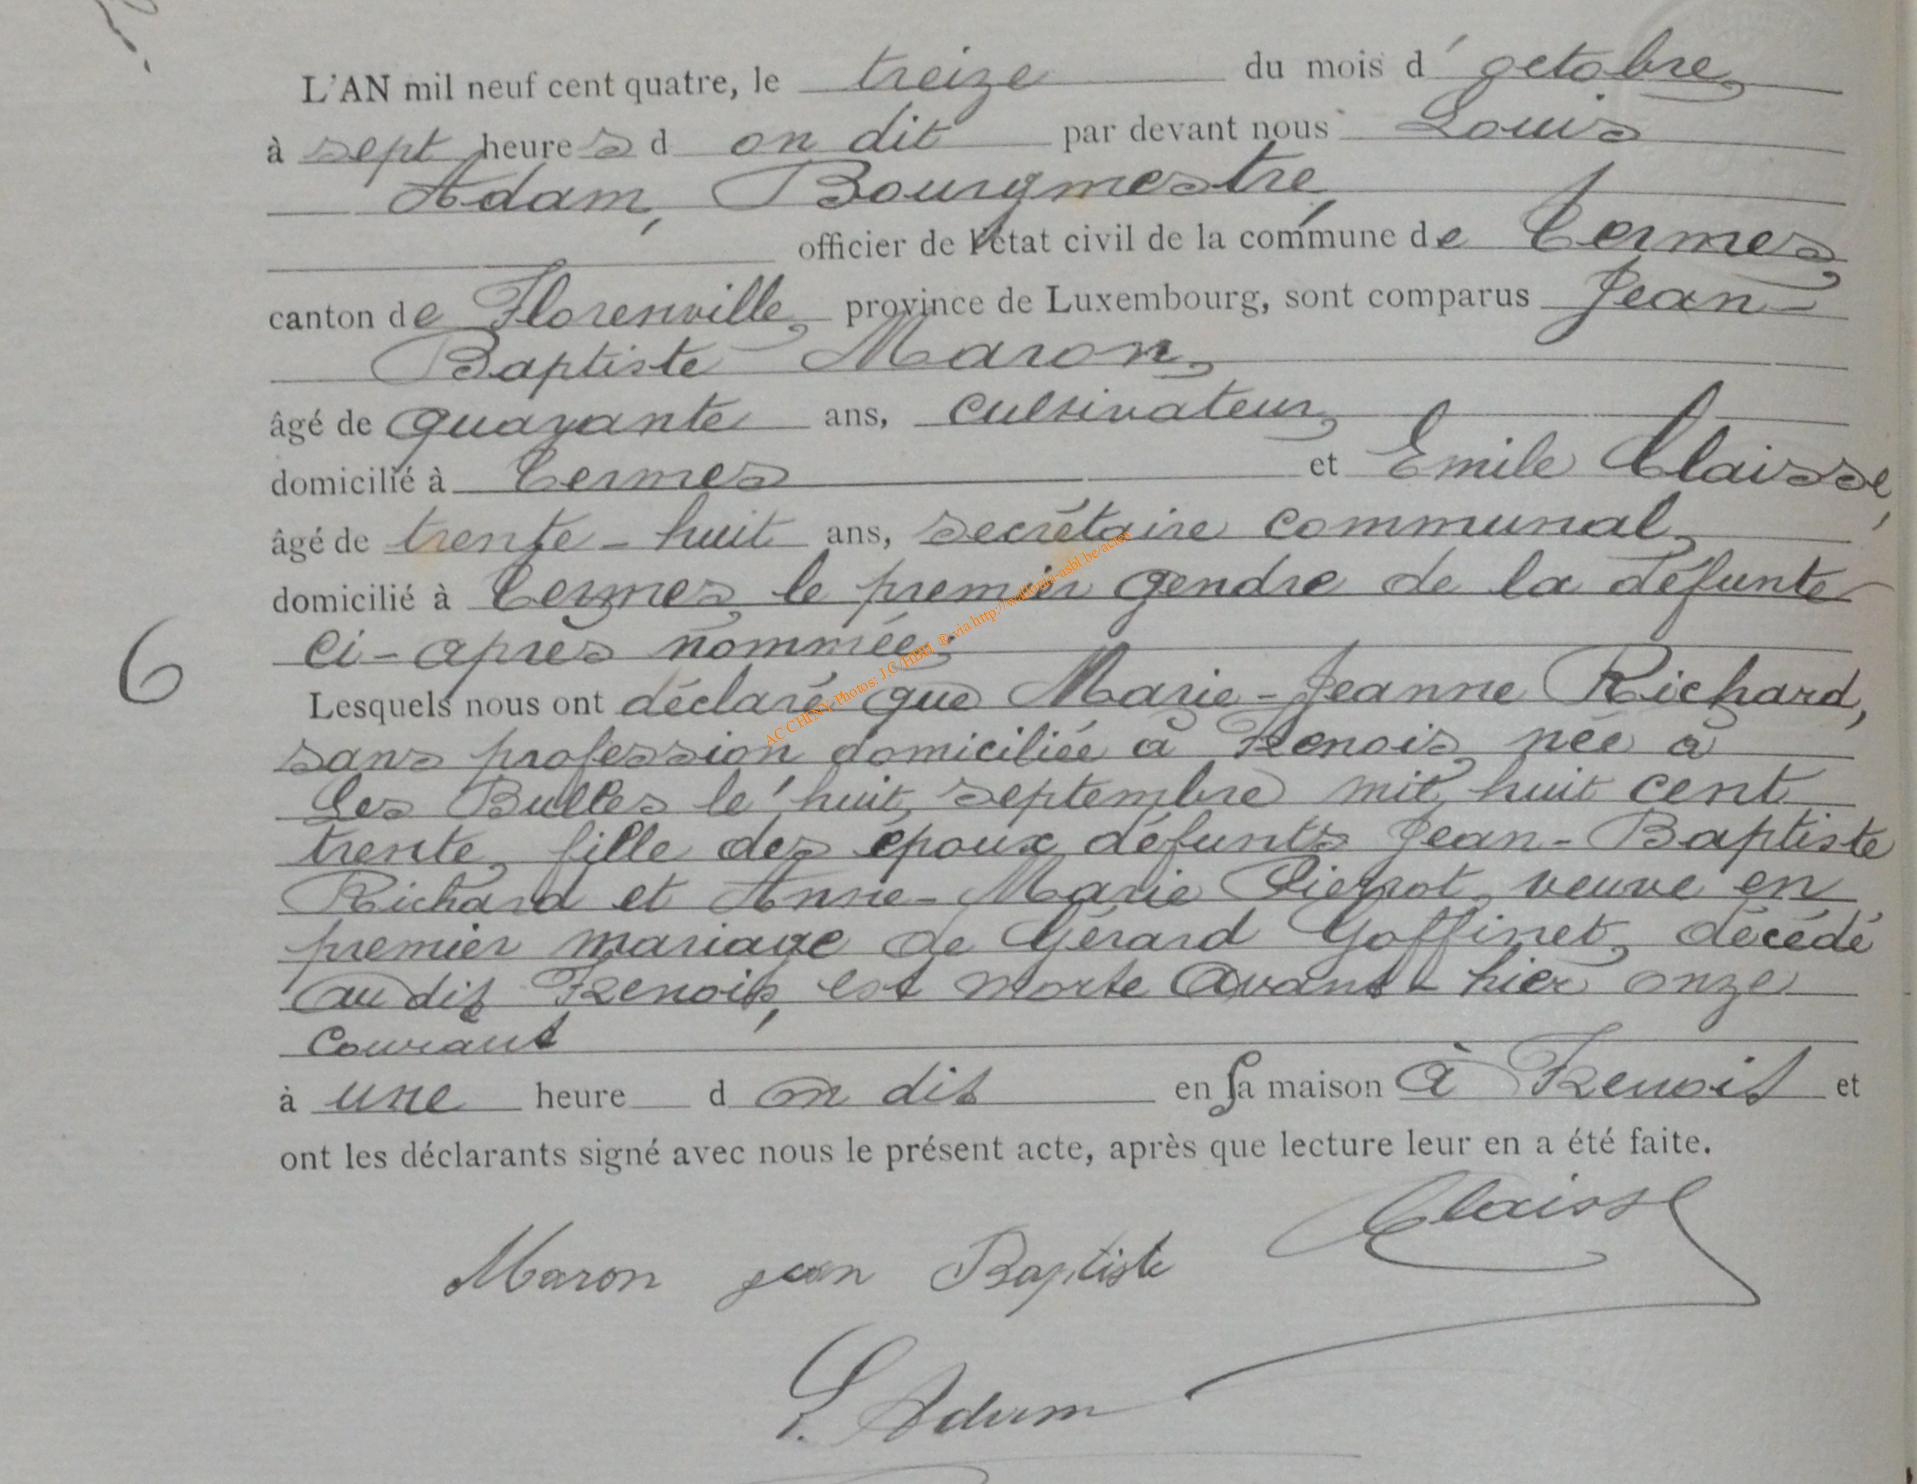 L'AN mil neuf cent quatre, le treize du mois d'octobre,
à sept heures d on dit par devant nous Louis
Adam, Bourgmestre,
officier de l'état civil de la commune de Termes,
canton de Florenville, province de Luxembourg, sont comparus Jean-
Baptiste Maron,
âgé de quarante ans, cultivateur,
domicilié à Termes et Emile Claisse,
âgé de trente-huit ans, secrétaire communal,
domicilié à Termes, le premier gendre de la défunte
ci-après nommée;
6
Lesquels nous ont déclaré que Marie-Jeanne Richard,
sans profession domiciliée à Frenois, née à
Les Bulles le huit septembre mil huit cent
trente, fille des époux défunts Jean-Baptiste
Richard et Anne-Marie Pierrot, veuve en
premier mariage de Gérard Goffinet, décédé
au dit Frenois, est morte avant-hier onze
courant
à une heure d on dit en sa maison à Frenois et
ont les déclarants signé avec nous le présent acte, après que lecture leur en a été faite.
Claisse
Maron jean Baptiste
L. Adam
AC CHINY-Photos: J.C/HBH ® via http://wallonia-asbl.be/actes